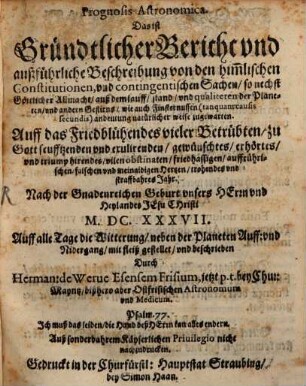 Prognosis Astronomica.
Das ist
Gründtlicher Bericht vnd
außführliche Beschreibung von den himlischen
Constitutionen, vnd contingentischen Sachen / so nechst
Göttlicher Allmacht / auß dem lauff / stand / vnd qualiteten der Plane-
ten / vnd andern Gestirns / wie auch Finsternussen (tanquam causis
secundis) andeutung natürlicher weise zugewarten.
Auff das Friedblühendes vieler Betrübten / zu
Gott seufftzenden vnd exulirenden / gewüuschtes / erhörtes /
vnd triumphirendes / vilen obstinaten / friedhässigen / auffrühri-
schen / falschen vnd meinaidigen Hertzen / trohendes vnd
straffbahres Jahr.
Nach der Gnadenreichen Geburt vnsers HErrn vnd
Heylandes JEsu Christi
M. DC. XXXVII.
Auff alle Tage die Witterung / neben der Planeten Auff: vnd
Nidergang / mit fleiß gestellet / vnd beschrieben
Durch
Herman: de Werue Esensem Frisium, jetzt p. t. bey Chur:
Mayntz / bißhero aber Ostfrisischen Astronomum
vnd Medicum.
Psalm. 77.
Ich muß das leiden / die Hand deß HErrn kan alles endern.
Auß sonderbahrem Käyserlichen Priuilegio nicht
nachzudrucken.
Gedruckt in der Churfürstl: Hauptstat Straubing /
bey Simon Haan.